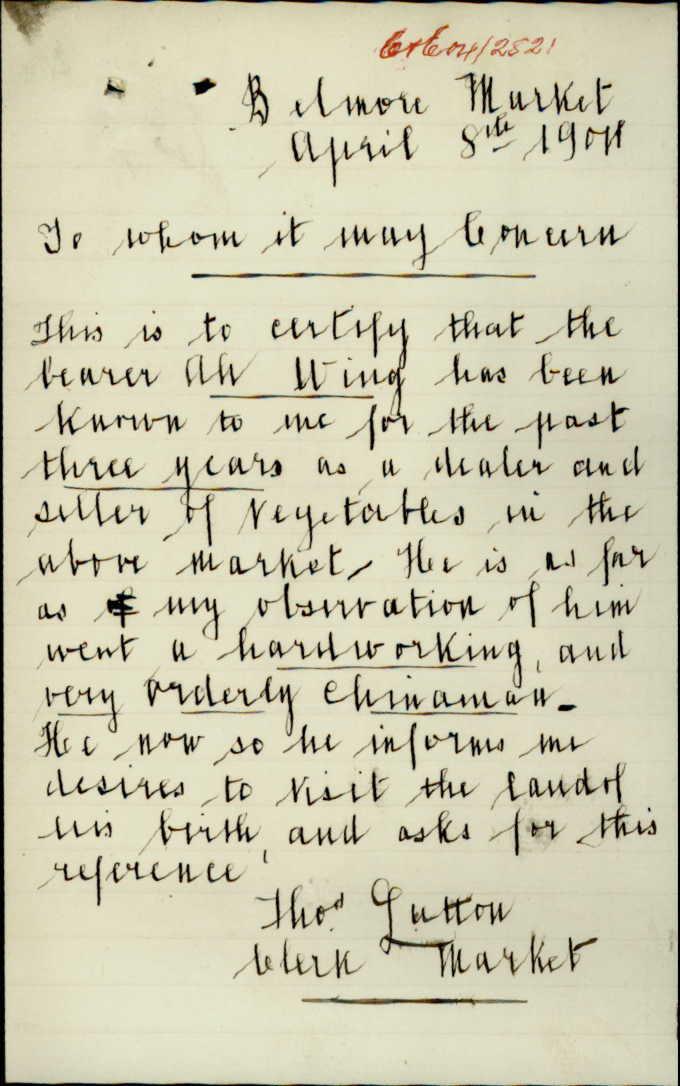 C+E 04/2521
Belmore Market
April 8th 1904
To whom it may Concern
This is to certify that the
bearer Ah Wing has been
known to me for the past
three years as a dealer and
seller of Vegetables in the
above market. He is as far
as my observation of him
went a hardworking, and
very orderly Chinaman.
He now so he informs me
desires to visit the land of
his birth, and asks for this
reference
Thos Lutton
Clerk Market